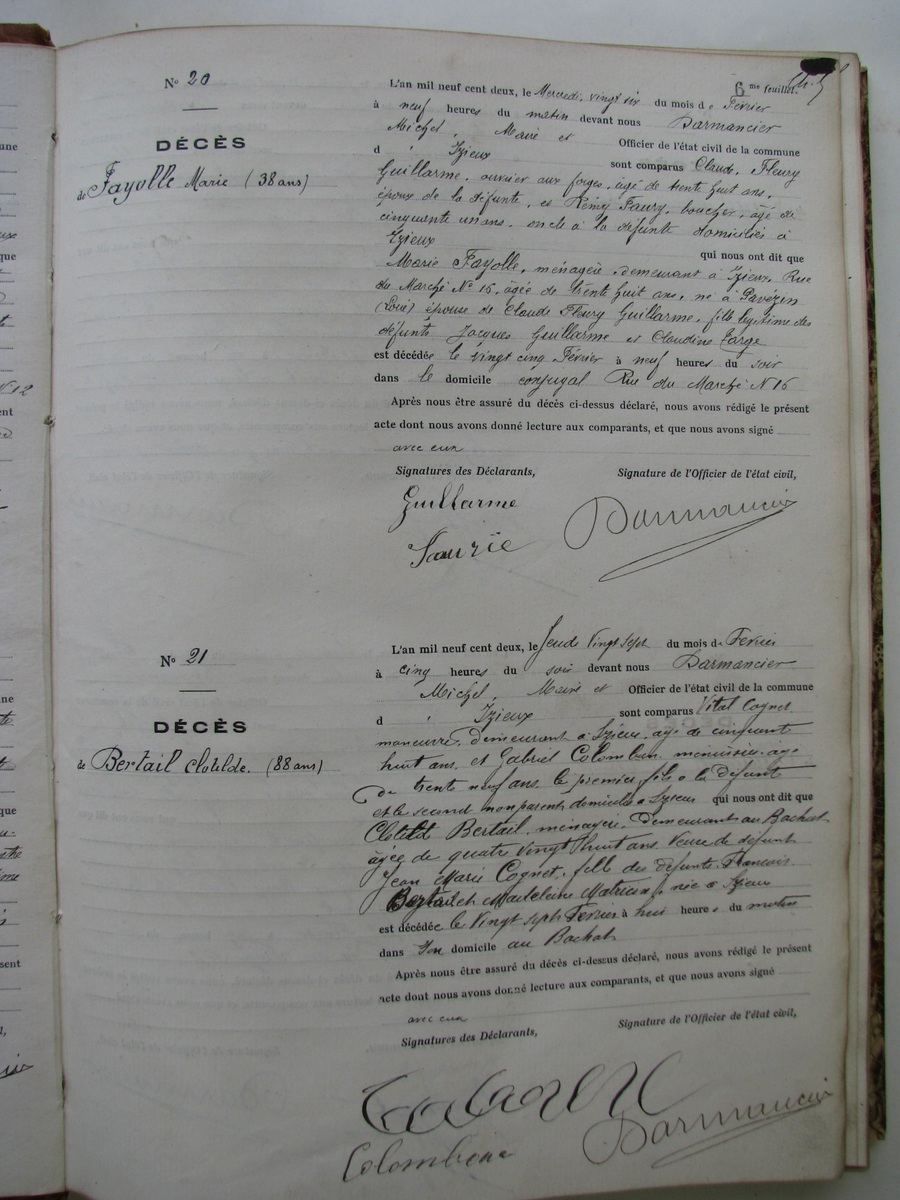 6 me feuillet.
N° 20
DÉCÈS
de Fayolle Marie (38 ans)
L'an mil neuf cent deux, le Mercredi, vingt six du mois de Février
à neuf heures du matin devant nous Darmancier
Michel, Maire et Officier de l'état civil de la commune
d' Izieux sont comparus Claude, Fleury
Guillarme, ouvrier aux forges, âgé de trente huit ans,
époux de la défunte, et Rémy Faury, boucher, âgé de
cinquante un ans, oncle à la défunte domiciliés à
Izieux qui nous ont dit que
Marie Fayolle, ménagère, demeurant à Izieux, Rue
du Marché N° 16, âgée de trente huit ans, né à Pavezin
(Loire) épouse de Claude Fleury Guillarme, fille légitime des
défunts Jacques Guillarme et Claudine Farge
est décédée le vingt cinq Février à neuf heures du soir
dans le domicile conjugal Rue du Marché N 16
Après nous être assuré du décès ci-dessus déclaré, nous avons rédigé le présent
acte dont nous avons donné lecture aux comparants, et que nous avons signé
avec eux
Signatures des Déclarants, Signature de l'Officier de l'état civil,
Guillarme Darmancier
Faurie
N° 21
DÉCÈS
de Bertail Clotilde. (88 ans)
L'an mil neuf cent deux, le Jeudi Vingt sept du mois de Fevrier
à cinq heures du soir devant nous Darmancier
Michel, Maire et Officier de l'état civil de la commune
d' Izieux sont comparus Vital Cognet
manœuvre, demeurant à Izieux, age de cinquant
huit ans, et Gabriel Colomban menuisier age
de trente neuf ans le premier fils a la defunt
et le second non parent domicilie a Izieux qui nous ont dit que
Clotild Bertail, ménagère, Demeurant au Bachat
âgée de quatre Vingt huit ans Veuve de defunt
Jean Marie Cognet, fille des défunts Francois
Bertail et Madeleine Matricon, née a Izieux
est décédée le Vingt sept Fevrier à huit heures du matin
dans Son domicile au Bachat
Après nous être assuré du décès ci-dessus déclaré, nous avons rédigé le présent
acte dont nous avons donné lecture aux comparants, et que nous avons signé
avec eux
Signatures des Déclarants, Signature de l'Officier de l'état civil,
Darmancier